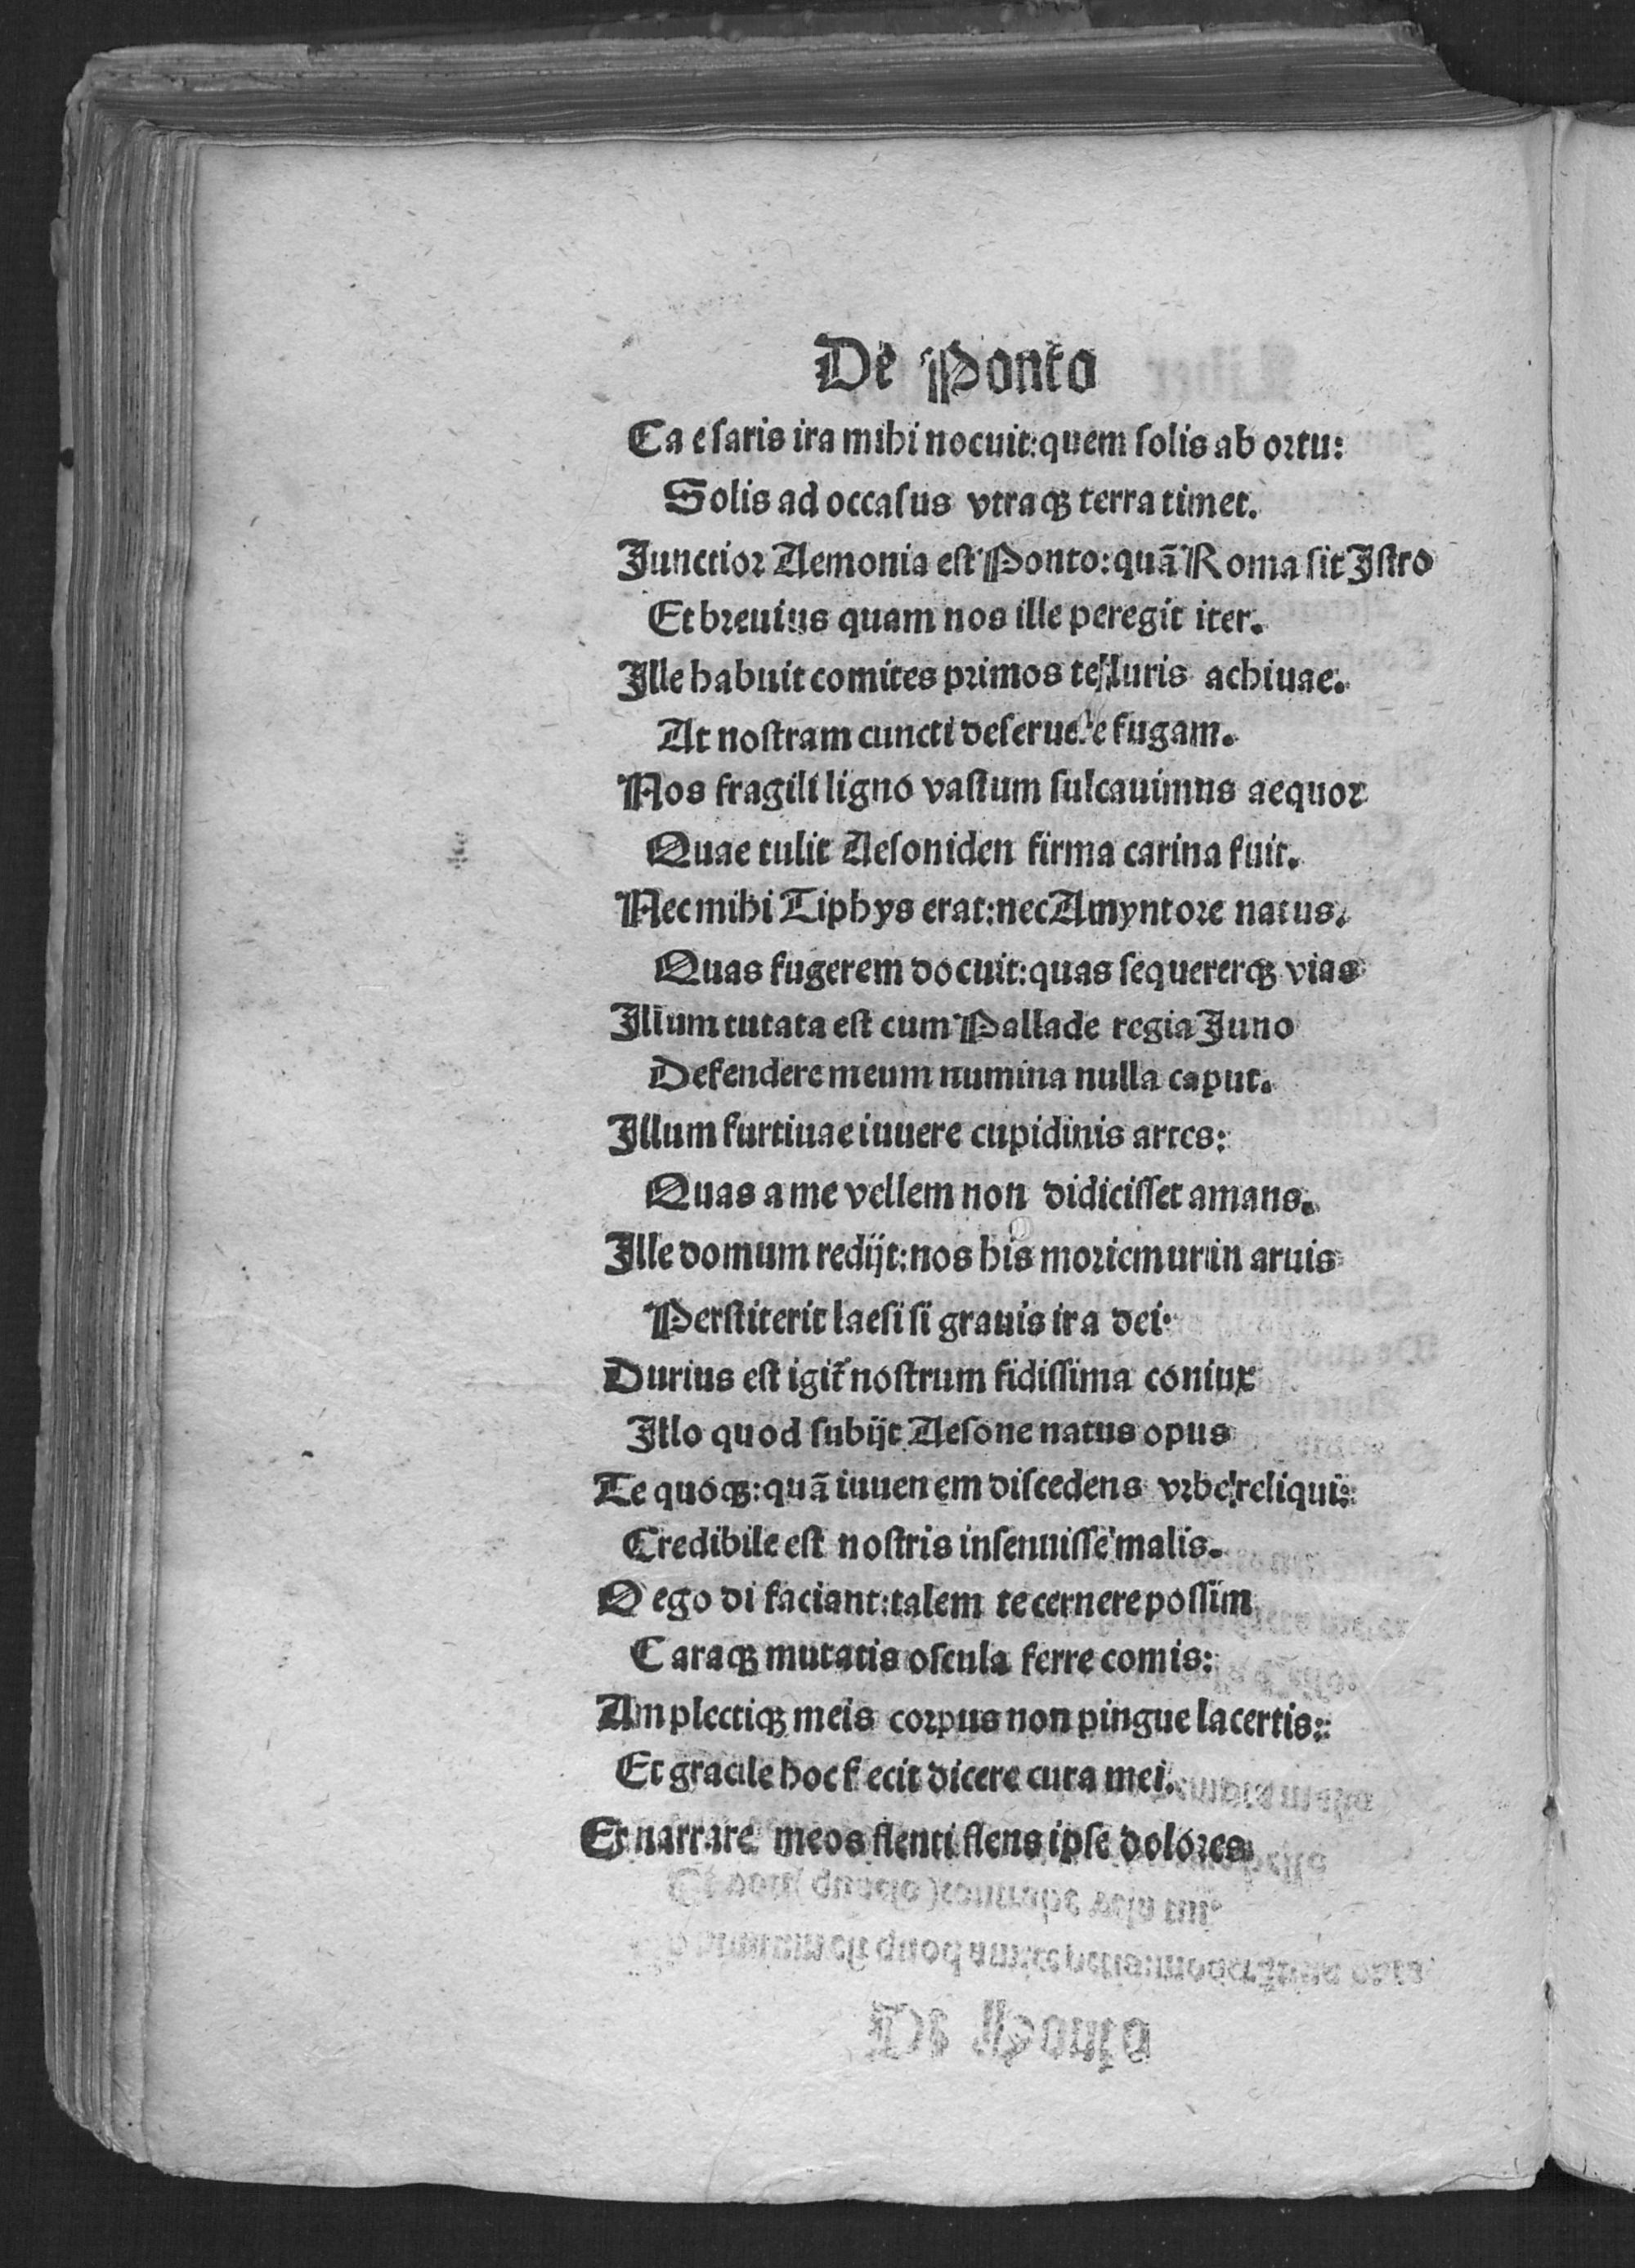 De Ponto
Caesaris ira mihi nocuit: quem ſolis ab ortu:
Solis ad occaſus vtraqꝫ terra timet.
Junctior Aemonia eſt Ponto: quã Roma ſit Iſtro
Et breuius quam nos ille peregit iter.
Ille habuit comites primos telluris achiuae.
At noſtram cuncti deſeruere fugam.
Nos fragili ligno vaſtum ſulcauimus aequor
Quae tulit Aeſoniden firma carina fuit.
Nec mihi Tiphys erat: nec Amyntore natus.
Quas fugerem docuit: quas ſequererqꝫ vias
Illum tutata eſt cum Pallade regia Juno
Defendere meum numina nulla caput.
Illum furtiuae iuuere cupidinis artes:
Quas a me vellem non didiciſſet amans.
Ille domum redijt: nos his moriemur in aruis
Perſtiterit laeſi ſi grauis ira dei.
Durius eſt igit̃ noſtrum fidiſſima coniux
Itlo quod ſubijt Aeſone natus opus
Te quoqꝫ: quã iuuenem diſcedens vrbe reliqui:
Credibile eſt noſtris inſenuiſſe malis.
O ego di faciant: talem te cernere poſſim
Caraqꝫ mutatis oſcula ferre comis:
Amplectiqꝫ meis corpus non pingue lacertis:
Et gracile hoc fecit dicere cura mei.
Et narrare meos flenti flens ipſe dolores